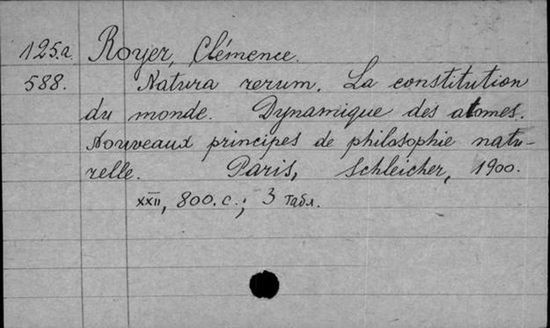 125.a. Royer, Clémence.
588. Natura rerum. La constitution
du monde. Dynamique des atomes.
Nouveaux principes de philosophie natu-
relle. Paris, Schleicher, 1900.
XXII, 800. с.; 3 табл.